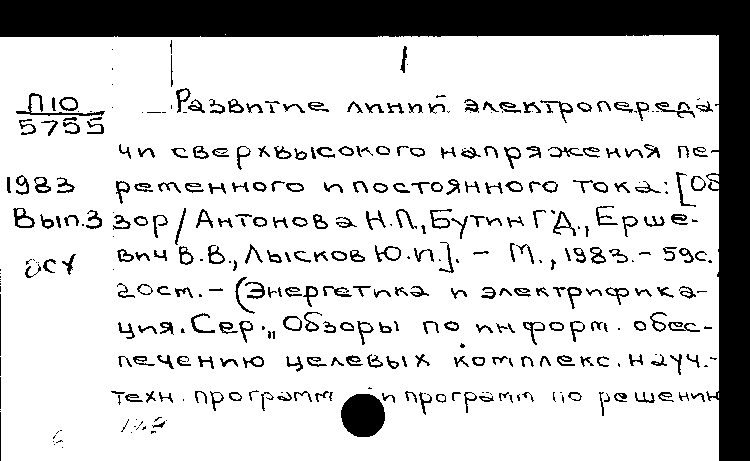 1
П10 Развитие линий электропереда-
5755
чи сверхвысокого напряжения пе-
1983 ременного и постоянного тока: [Об
Вып.3 зор / Антонова Н.П., Бутин Г.Д., Ерше-
вич В.В., Лысков Ю.И.]. - М., 1983. - 59с.;
ОСУ
20см. - (Энергетика и электрифика-
ция. Сер. „Обзоры по информ. обес-
печению целевых комплекс. науч.-
техн. программ и программ по решению